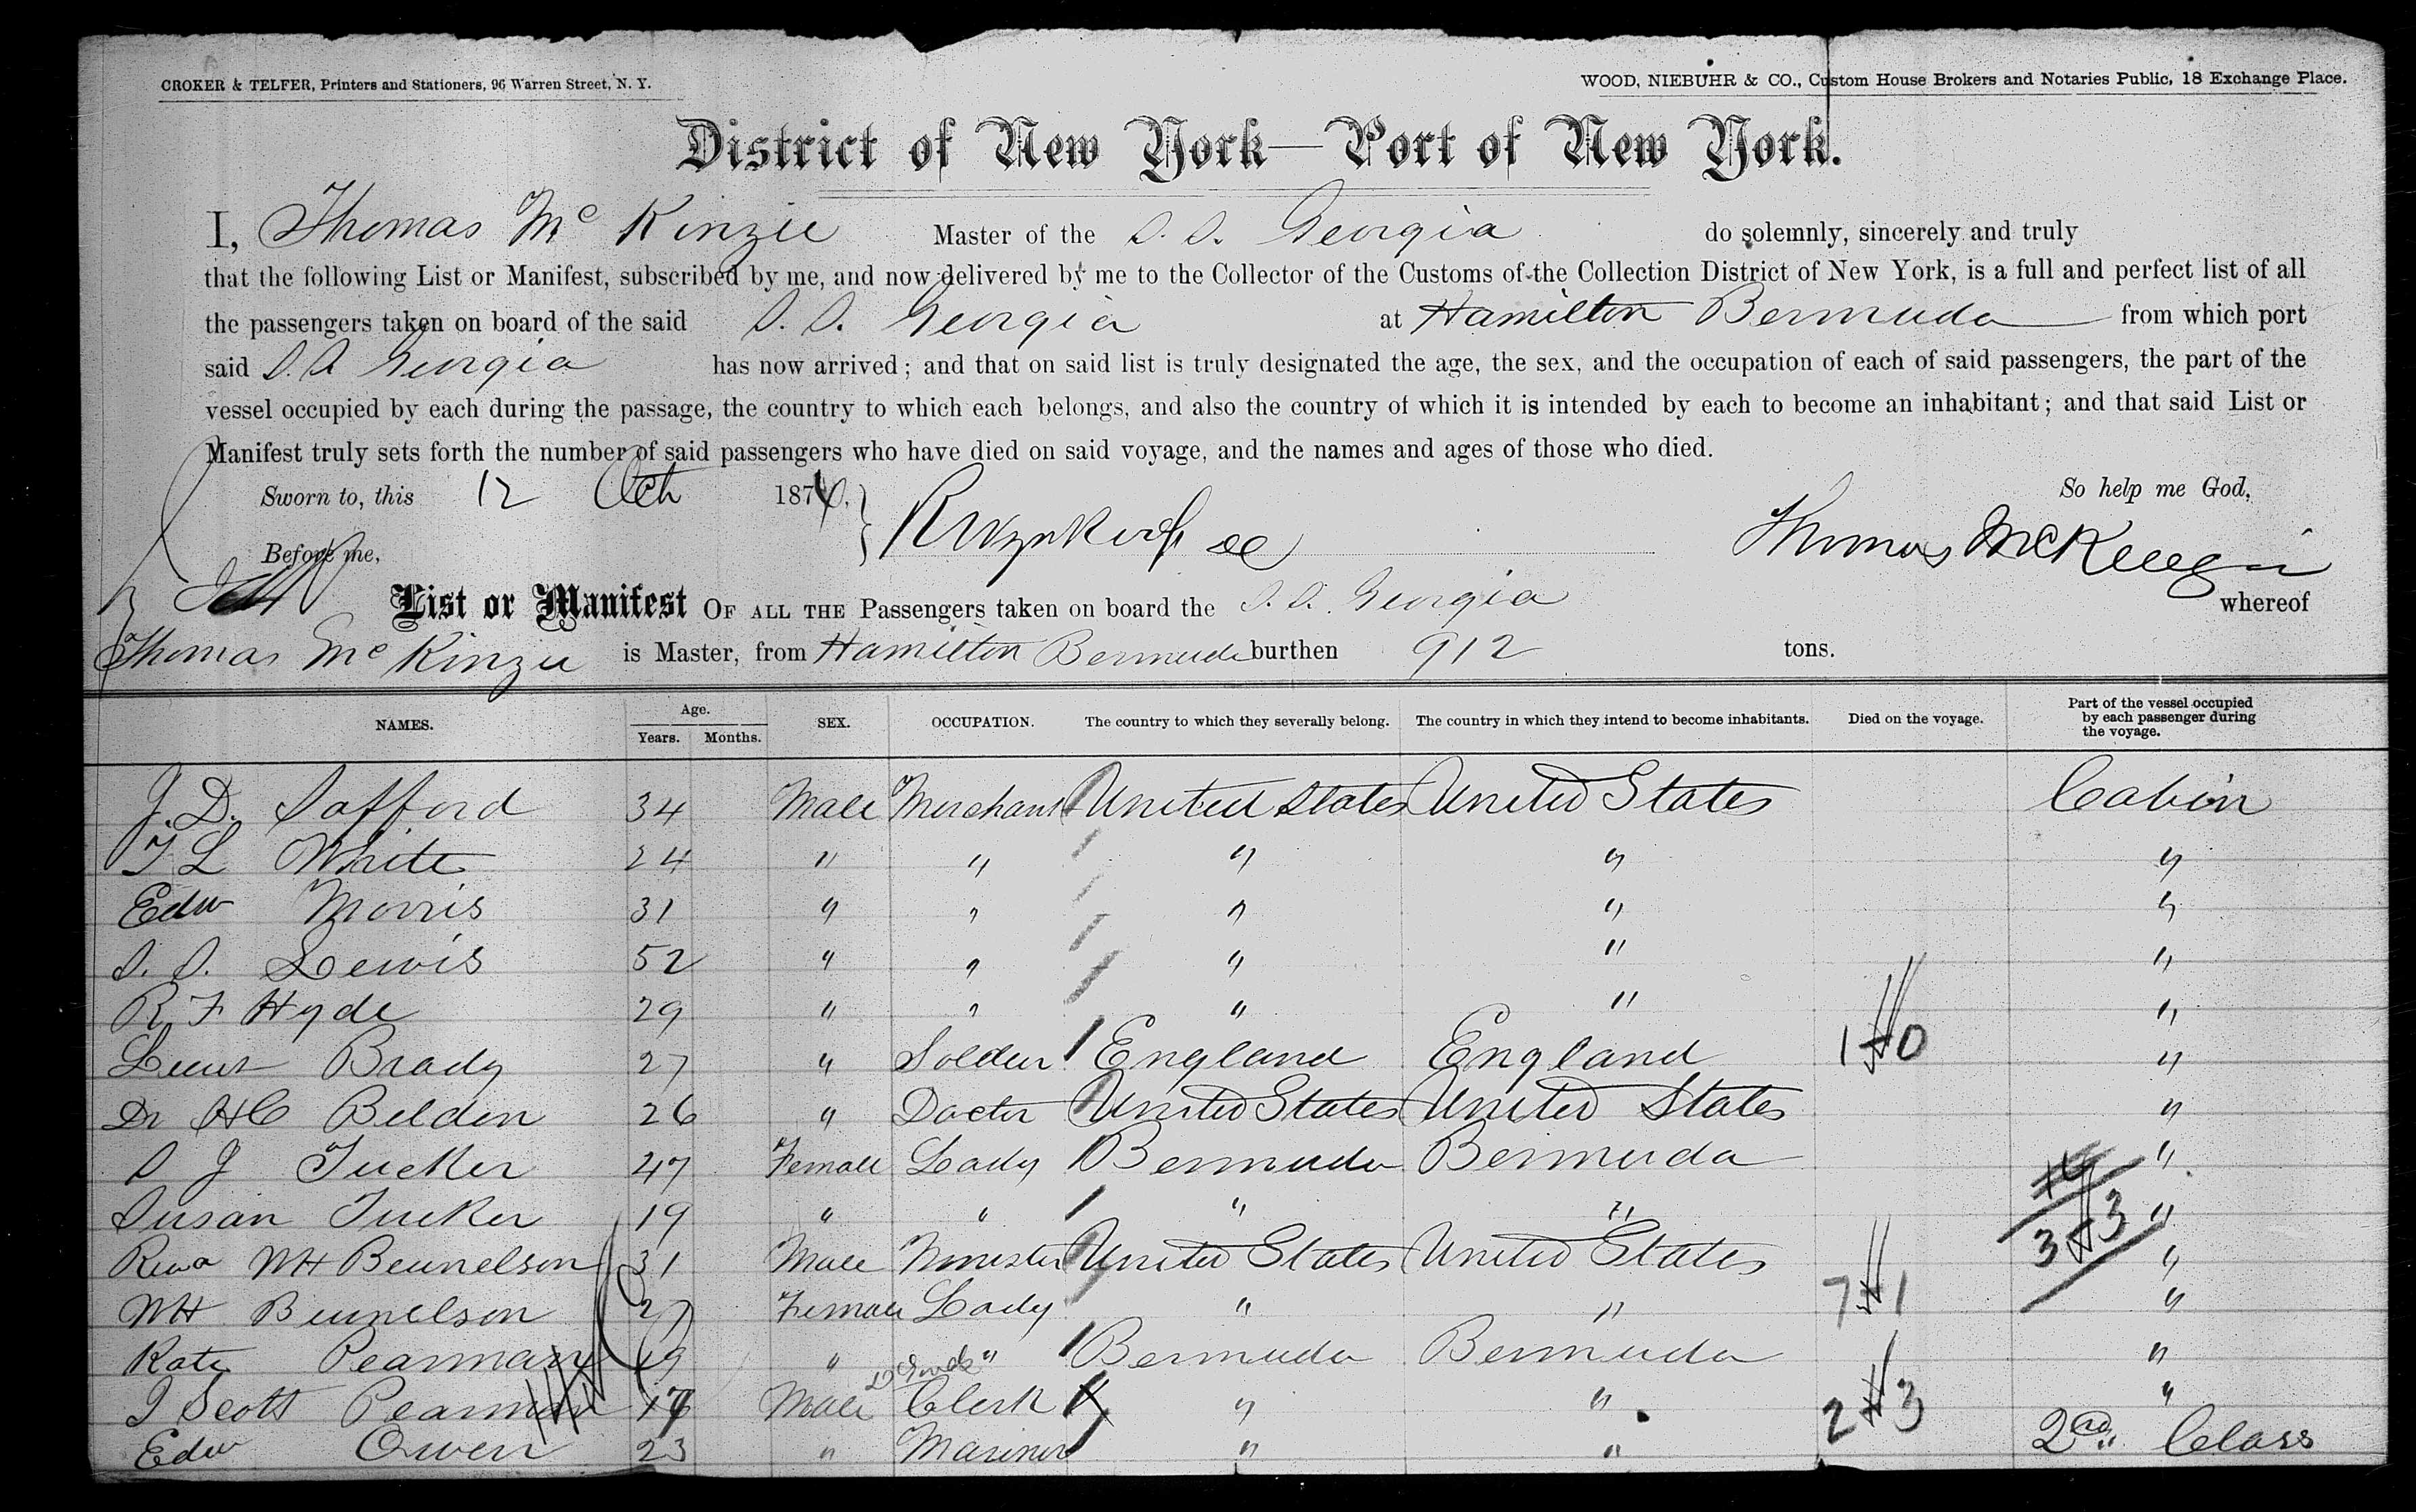 CROKER & TELFER, Printers and Stationers, 96 Warren Street, N. Y.
WOOD, NIEBUHR & CO., Custom House Brokers and Notaries Public, 18 Exchange Place.
District of New York—Port of New York.
I, Thomas Mc Kinzie Master of the S. S. Georgia do solemnly, sincerely and truly
that the following List or Manifest, subscribed by me, and now delivered by me to the Collector of the Customs of the Collection District of New York, is a full and perfect list of all
the passengers taken on board of the said S. S. Georgia at Hamilton Bermuda from which port
said S. S Georgia has now arrived; and that on said list is truly designated the age, the sex, and the occupation of each of said passengers, the part of the
vessel occupied by each during the passage, the country to which each belongs, and also the country of which it is intended by each to become an inhabitant; and that said List or
Manifest truly sets forth the number of said passengers who have died on said voyage, and the names and ages of those who died.
Sworn to, this 12 Oct 187
So help me God,
Before me,
Thomas
List or Manifest OF ALL THE Passengers taken on board the S. S. Georgia whereof
Thomas Mc Kinzie is Master, from Hamilton Bermuda burthen 912 tons.
NAMES. Age. Years. Months. SEX. OCCUPATION. The country to which they severally belong. The country in which they intend to become inhabitants. Died on the voyage. Part of the vessel occupied by each passenger during the voyage.
J. D. Safford 34 Male Merchant United States United States Cabin
T L White 24 " " " " "
Edw Morris 31 " " " " "
S. S. Lewis 52 " " " " "
R F Hyde 29 " " " " "
Lieut Brady 27 " Soldier England England 1 0 "
Dr HC Belden 26 " Doctor United States United States "
S J Tucker 47 Female Lady Bermuda Bermuda "
Susan Tucker 19 " " " " 3 3 "
WH Bennelson 31 Male Minister United States United States "
WH Bennelson 27 Female Lady " " 7 1 "
Kate Pearman 19 " " Bermuda Bermuda "
J Scott Pearman Male Clerk " " 2 3 "
Edw Owen 23 " Mariner " " 2nd Class